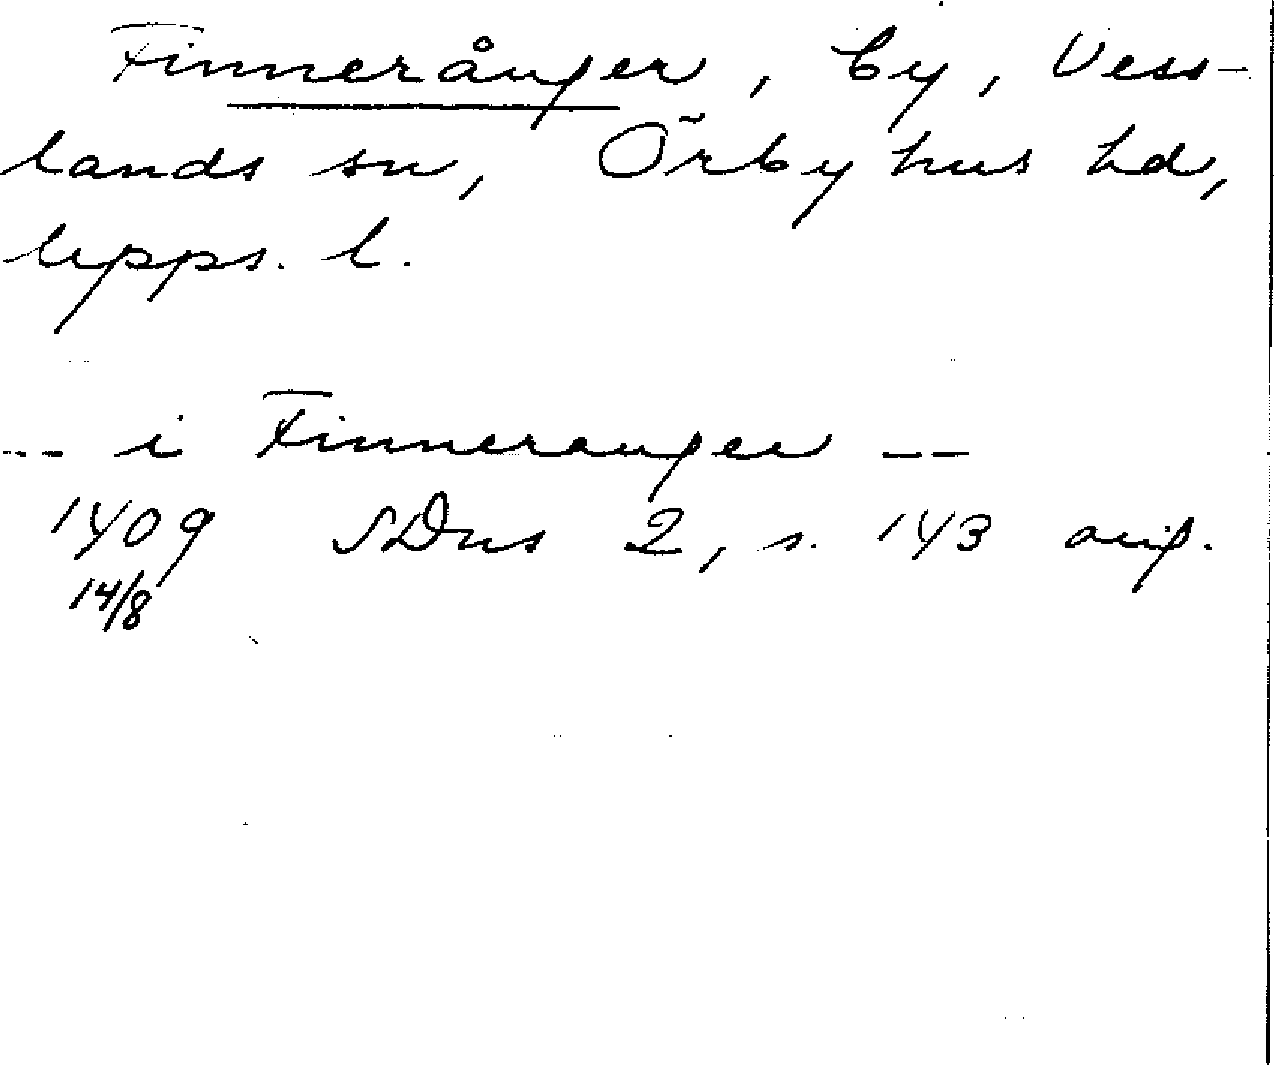 Finnerånger, by, Vess-
lands sn, Örbyhus hd,
Upps. l.
-- i Finneranger --
1409 SDns 2, s. 143 avs.
14/8